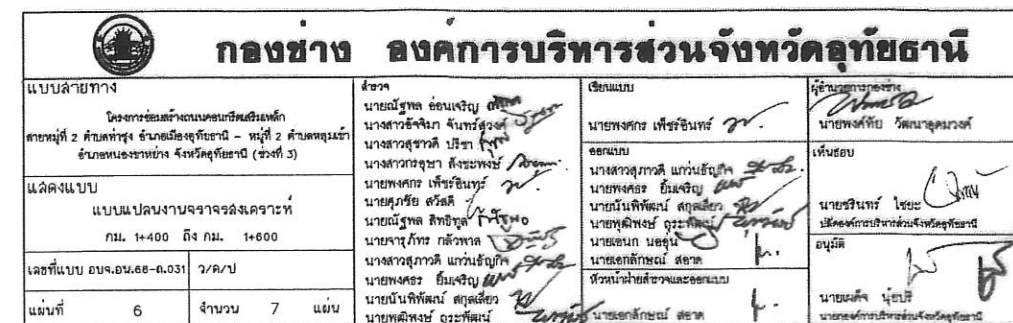 กองช่าง องค์การบริหารส่วนจังหวัดอุทัยธานี
แบบสายทาง
โครงการซ่อมสร้างถนนคอนกรีตเสริมเหล็ก
สายหมู่ที่ 2 ตำบลท่าซุง อำเภอเมืองอุทัยธานี - หมู่ที่ 2 ตำบลหลุมเข้า
อำเภอหนองขาหย่าง จังหวัดอุทัยธานี (ช่วงที่ 3)
แสดงแบบ
แบบแปลนงานจราจรสงเคราะห์
กม. 1+400 ถึง กม. 1+600
เลขที่แบบ อบจ.อน.66-ถ.031 ว/ด/ป
แผ่นที่ 6 จำนวน 7 แผ่น
สำรวจ
นายณัฐพล อ่อนเจริญ
นางสาวอัจจิมา จันทร์สุวงศ์
นางสาวสุชาวดี ปรีชา
นางสาวกรอุษา ตังชะพงษ์
นายพงศกร เพ็ชร์อินทร์
นายศุภชัย สวัสดี
นายณัฐพล สิทธิฑูล
นายจารุภัทร กล้วพาล
นางสาวสุภาวดี แกว่นธัญกิจ
นายพงศธร ยิ้มเจริญ
นายนันพิพัฒน์ สกุลเสียว
นายพุฒิพงษ์ ถุระพัฒน์
เขียนแบบ
นายพงศกร เพ็ชร์อินทร์
ออกแบบ
นางสาวสุภาวดี แกว่นธัญกิจ
นายพงศธร ยิ้มเจริญ
นายนันพิพัฒน์ สกุลเสียว
นายพุฒิพงษ์ ถุระพัฒน์
นายเอนก นอขุน
นายเอกลักษณ์ สอาด
หัวหน้าฝ่ายสำรวจและออกแบบ
นายเอกลักษณ์ สอาด
ผู้อำนวยการกองช่าง
นายพงศ์ทัย วัฒนาอุดมวงศ์
เห็นชอบ
นายชรินทร์ ไชยะ
ปลัดองค์การบริหารส่วนจังหวัดอุทัยธานี
อนุมัติ
นายเผด็จ นุ้ยปรี
นายกองค์การบริหารส่วนจังหวัดอุทัยธานี